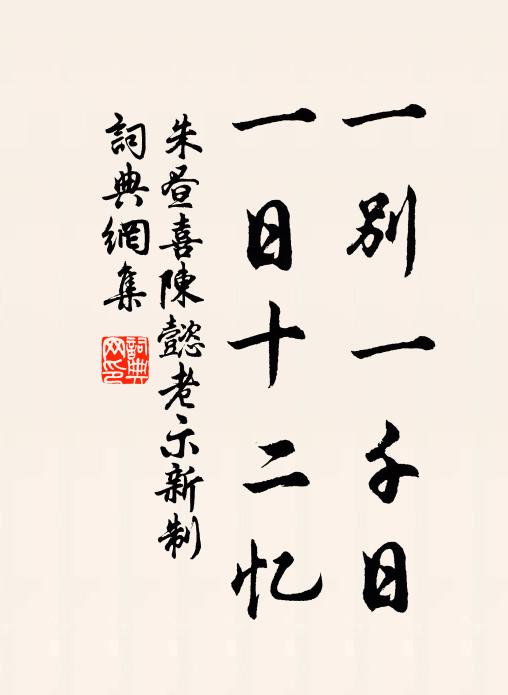 一别一千日
一日十二忆
朱昼喜陳懿老示新制
詞典網集
詞典网印